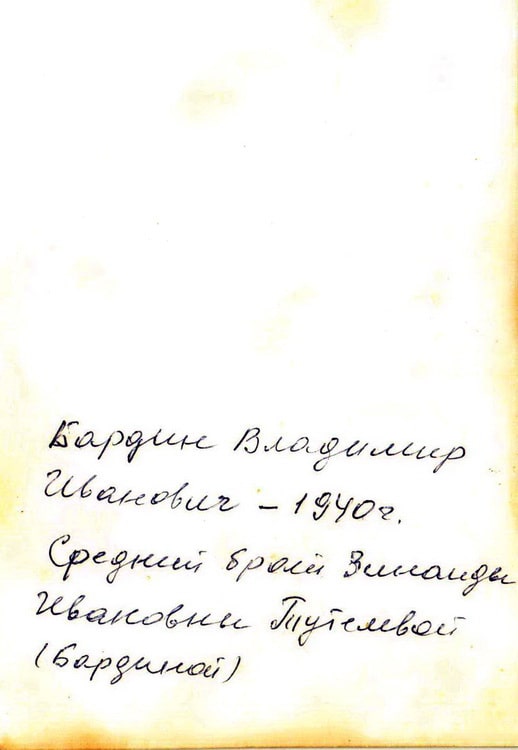 Бардин Владимир
Иванович – 1940г.
Средний брат Зинаиды
Ивановны
(Бардиной)